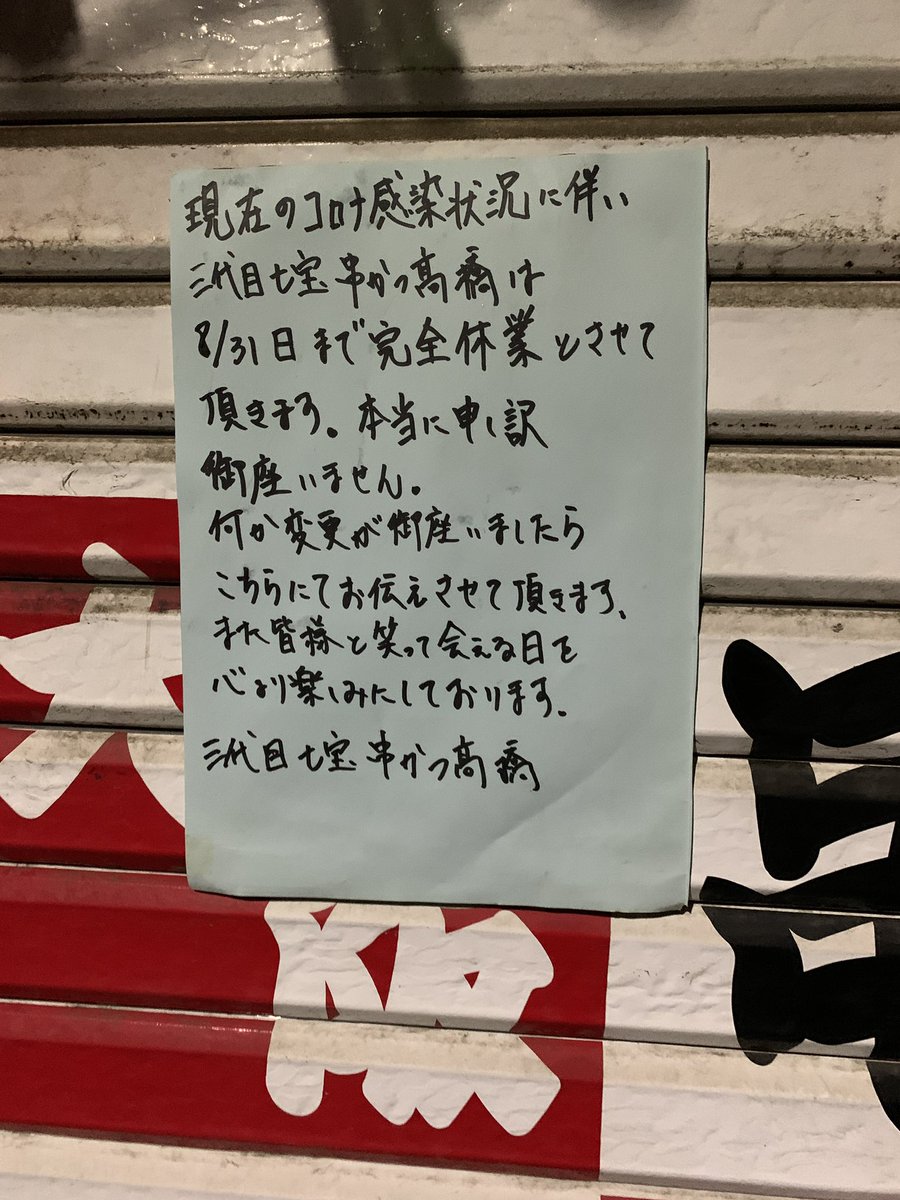 現在のコロナ感染状況に伴い
三代目七宝串かつ高橋は
8/31日まで完全休業とさせて
頂きます。本当に申し訳
御座いません。
何か変更が御座いましたら
こちらにてお伝えさせて頂きます、
また皆様と笑って会える日を
心より楽しみにしております。
三代目七宝串かつ高橋
大
阪